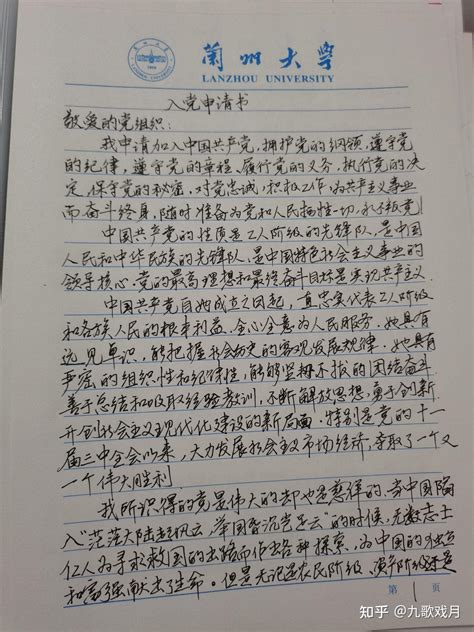 兰州大学
LANZHOU UNIVERSITY
入党申请书
敬爱的党组织：
我申请加入中国共产党，拥护党的纲领，遵守党
的纪律，遵守党的章程，履行党的义务，执行党的决
定，保守党的秘密，对党忠诚，积极工作，为共产主义事业
而奋斗终身，随时准备为党和人民牺牲一切，永不叛党！
中国共产党的性质是工人阶级的先锋队，是中国
人民和中华民族的先锋队，是中国特色社会主义事业的
领导核心。党的最高理想和最终奋斗目标是实现共产主义。
中国共产党自她成立之日起，一直忠实代表工人阶级
和各族人民的根本利益，全心全意为人民服务。她具有
远见卓识，能把握社会历史的客观发展规律。她具有
严密的组织性和纪律性，能够坚持不报的团结奋斗
善于总结和吸取经验教训，不断解放思想，勇于创新
开创社会主义现代化建设的新局面，特别是党的十一
届三中全会以来，大力发展社会主义市场经济，夺取了一个又
一个伟大胜利
我所认得的党是伟大的却也是悲怆的，当中国陷
入“茫茫大陆起风云，举国昏沉岂足云”的时候，无数志士
仁人为寻求救国的出路而作出各种探索，为中国的独立
和富强献出了生命。但是无论是农民阶级、
第 1 页
知乎 @九歌戏月